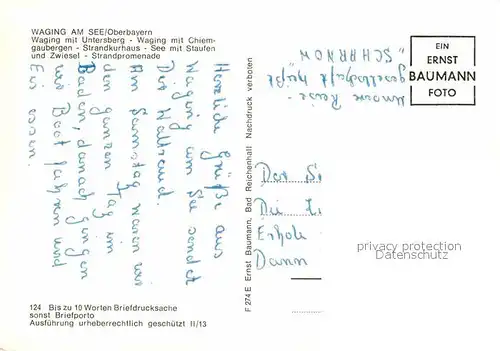 WAGING AM SEE/Oberbayern
Waging mit Untersberg - Waging mit Chiem-
gaubergen - Strandkurhaus - See mit Staufen
und Zwiesel - Strandpromenade
Herzliche Grüße aus
Waging am See sendet
Dir Waltraud.
Am Samstag waren wir
den ganzen Tag im
Baden, danach gingen
wir Boot fahren und
Eis essen.
124 Bis zu 10 Worten Briefdrucksache
sonst Briefporto
Ausführung urheberrechtlich geschützt II/13
F 274 E Ernst Baumann, Bad Reichenhall Nachdruck verboten
Unsere Reise-
gesellschaft heißt
"SCHARNOW
EIN
ERNST
BAUMANN
FOTO
Die
Erhole
Dann
privacy protection
Datenschutz